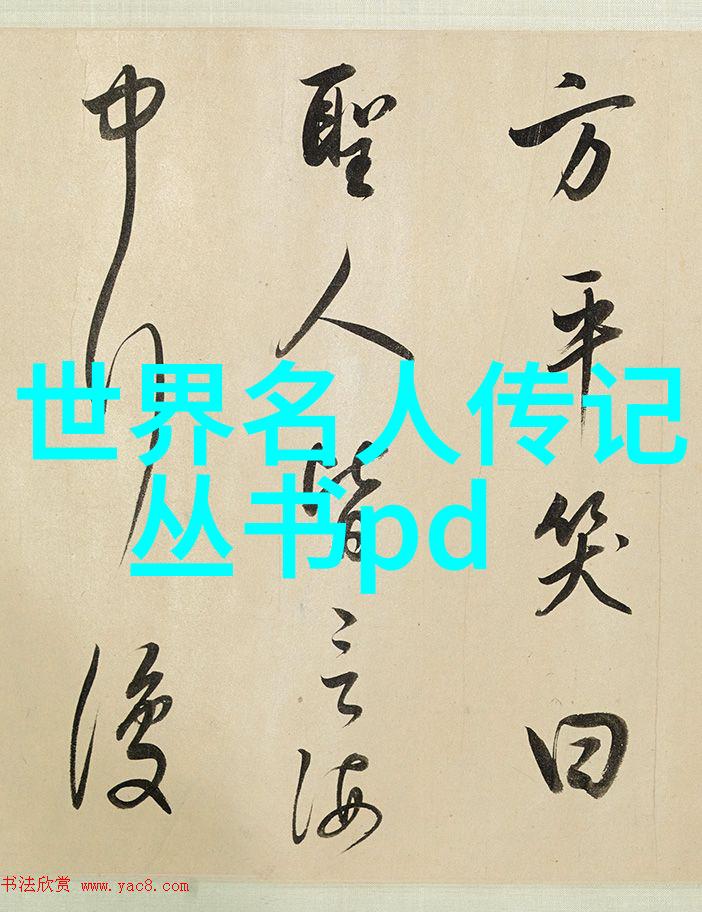 方平笑曰
聖人皆言海
中行復
世界名人传记
丛书pd
书法欣赏 www.yac8.com